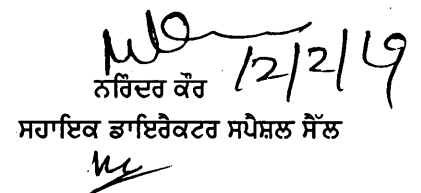 12/2/19
ਨਰਿੰਦਰ ਕੌਰ
ਸਹਾਇਕ ਡਾਇਰੈਕਟਰ ਸਪੈਸ਼ਲ ਸੈੱਲ